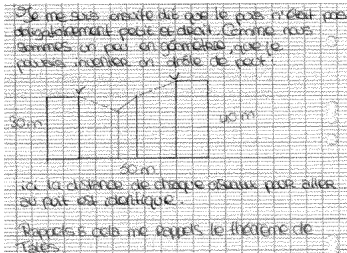 Je me suis ensuite dit que le puis n'était pas
obligatoirement petit et droit. Comme nous
sommes un peu en géométrie, que je
pouvais inventer un drôle de puit!
30 m
40 m
50 m
ici la distance de chaque oiseaux pour aller
au puit est identique.
Rappels: cela me rappels le théorème de
Tales